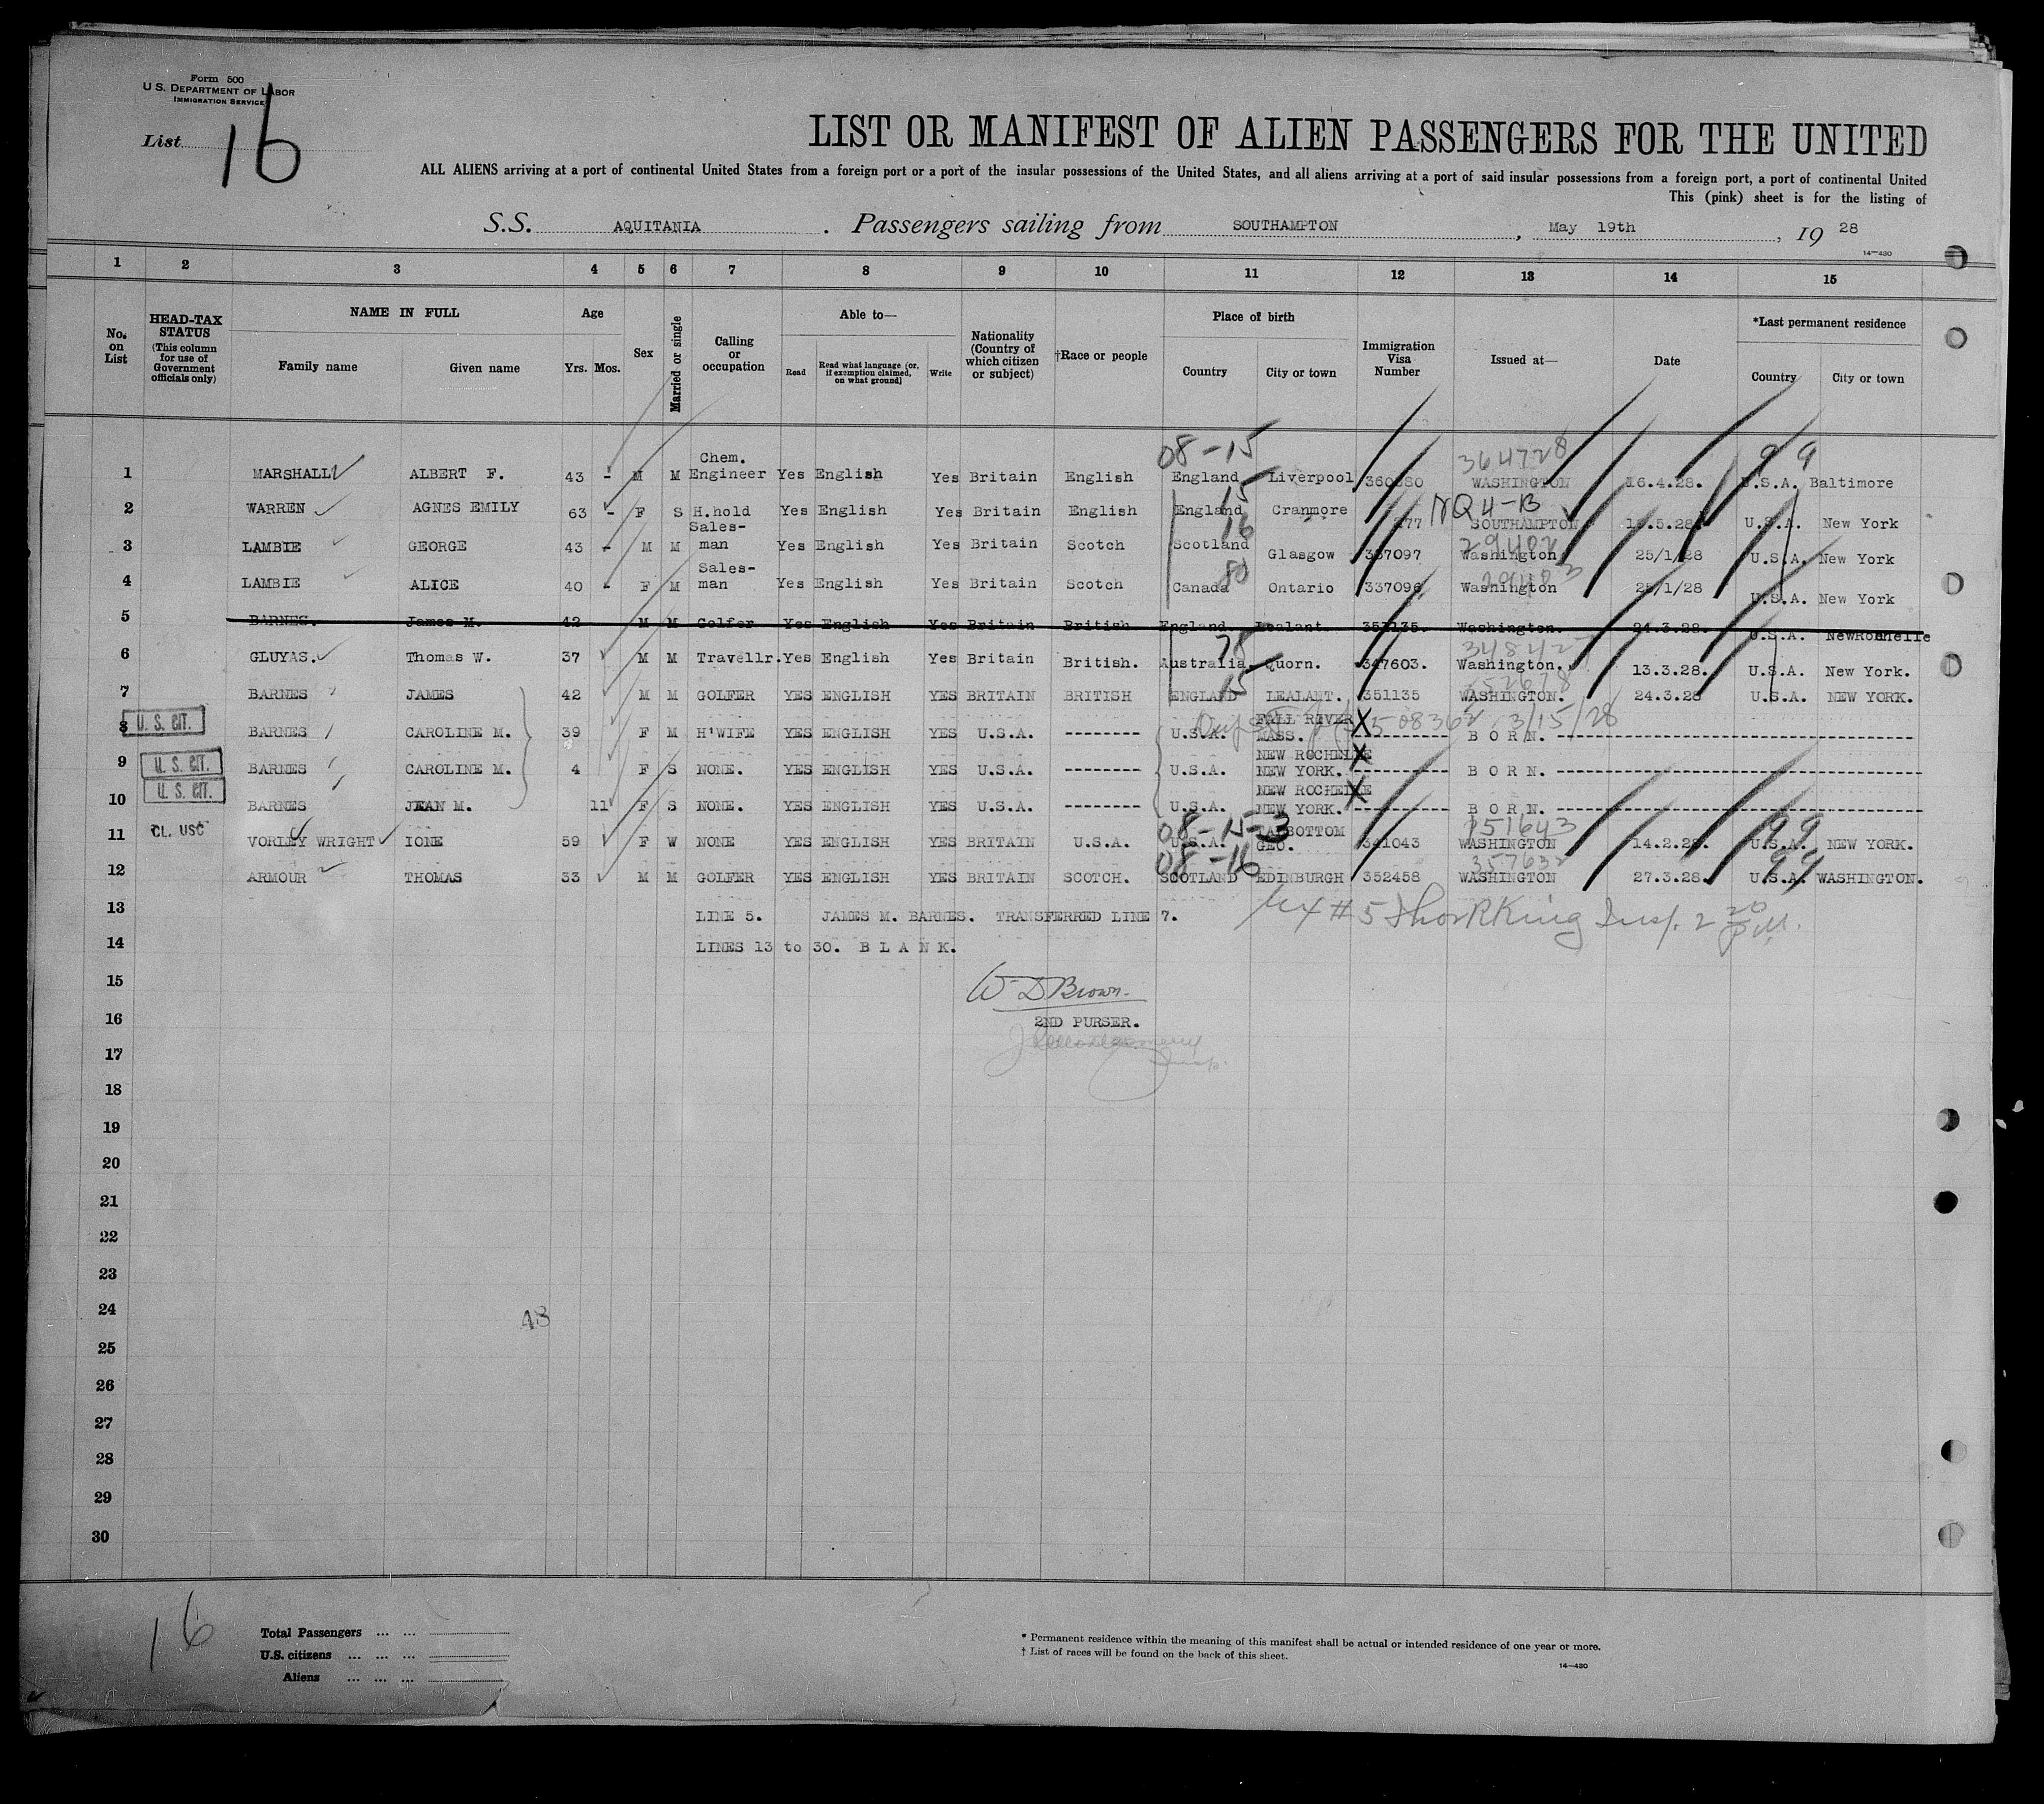 Form 500
U. S. DEPARTMENT OF LABOR
IMMIGRATION SERVICE
List 16
LIST OR MANIFEST OF ALIEN PASSENGERS FOR THE UNITED
ALL ALIENS arriving at a port of continental United States from a foreign port or a port of the insular possessions of the United States, and all aliens arriving at a port of said insular possessions from a foreign port, a port of continental United
This (pink) sheet is for the listing of
S.S. AQUITANIA. Passengers sailing from SOUTHAMPTON, May 19th, 19 28
14—430
1 2 3 4 5 6 7 8 9 10 11 12 13 14 15
No. on List
HEAD-TAX STATUS (This column for use of Government officials only)
NAME IN FULL
Family name Given name
Age
Yrs. Mos.
Sex
Married or single
Calling or occupation
Able to—
Read Read what language (or, if exemption claimed, on what ground) Write
Nationality (Country of which citizen or subject)
†Race or people
Place of birth
Country City or town
Immigration Visa Number
Issued at—
Date
*Last permanent residence
Country City or town
08-15 364728 99
1 MARSHALL ALBERT F. 43 - M M Chem. Engineer Yes English Yes Britain English England Liverpool WASHINGTON 16.4.28. U.S.A. Baltimore
15 NQ4-B
2 WARREN AGNES EMILY 63 - F S H.hold Yes English Yes Britain English England Cranmore 277 SOUTHAMPTON U.S.A. New York
16 29402
3 LAMBIE GEORGE 43 - M M Sales-man Yes English Yes Britain Scotch Scotland Glasgow 337097 Washington 25/1/28 U.S.A. New York
80 29403
4 LAMBIE ALICE 40 - F M Sales-man Yes English Yes Britain Scotch Canada Ontario 337096 Washington 25/1/28 U.S.A. New York
5 BARNES. James M. 42 M M Golfer Yes English Yes Britain British England Lealant 351135. Washington. 24.3.28. U.S.A. NewRochelle
78
6 GLUYAS. Thomas W. 37 M M Travellr. Yes English Yes Britain British. Australia. Quorn. 347603. Washington. 13.3.28. U.S.A. New York.
15
7 BARNES JAMES 42 M M GOLFER YES ENGLISH YES BRITAIN BRITISH ENGLAND LEALANT. 351135 WASHINGTON. 24.3.28 U.S.A. NEW YORK.
8 U. S. CIT. BARNES CAROLINE M. 39 F M H'WIFE YES ENGLISH YES U.S.A. -------- U.S.A. FALL RIVER MASS. X 508362 3/15/28 B O R N.
9 U. S. CIT. BARNES CAROLINE M. 4 F S NONE. YES ENGLISH YES U.S.A. -------- U.S.A. NEW ROCHELLE NEW YORK. X B O R N.
10 U. S. CIT. BARNES JEAN M. 11 F S NONE. YES ENGLISH YES U.S.A. -------- U.S.A. NEW ROCHELLE NEW YORK. X B O R N.
08-15-3 151643 99
11 CL. USC VORLEY WRIGHT IONE 59 F W NONE YES ENGLISH YES BRITAIN U.S.A. U.S.A. TALBOTTOM GEO. 341043 WASHINGTON 14.2.28. U.S.A. NEW YORK.
08-16 357632 99
12 ARMOUR THOMAS 33 M M GOLFER YES ENGLISH YES BRITAIN SCOTCH. SCOTLAND EDINBURGH 352458 WASHINGTON 27.3.28. U.S.A. WASHINGTON.
13 LINE 5. JAMES M. BARNES. TRANSFERRED LINE 7. #5 King Insp. 2 20 P.M.
14 LINES 13 to 30. B L A N K.
15 W D Brown.
16 2ND PURSER.
17
18
19
20
21
22
23
24
25
26
27
28
29
30
16
Total Passengers ... ...
U.S. citizens ... ... ...
Aliens ... ... ...
* Permanent residence within the meaning of this manifest shall be actual or intended residence of one year or more.
† List of races will be found on the back of this sheet.
14—430